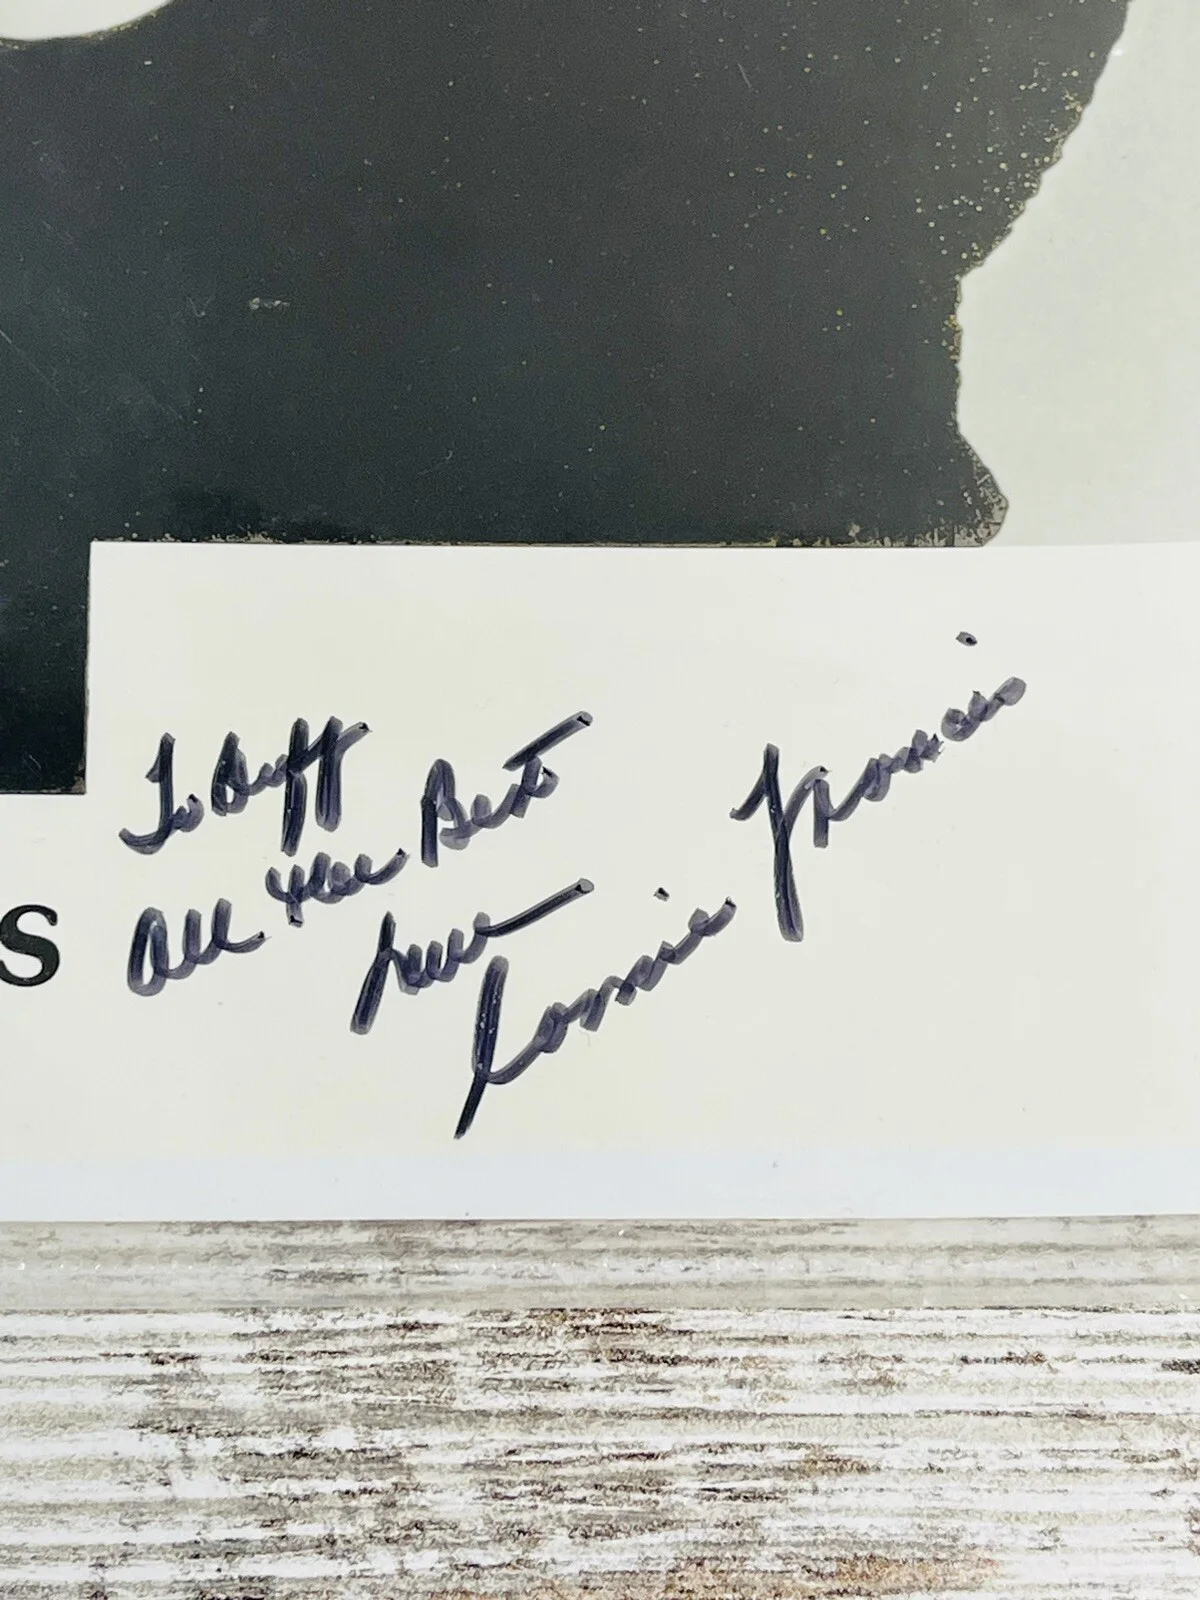 S
To Buff
All the Best
Love
Connie Francis